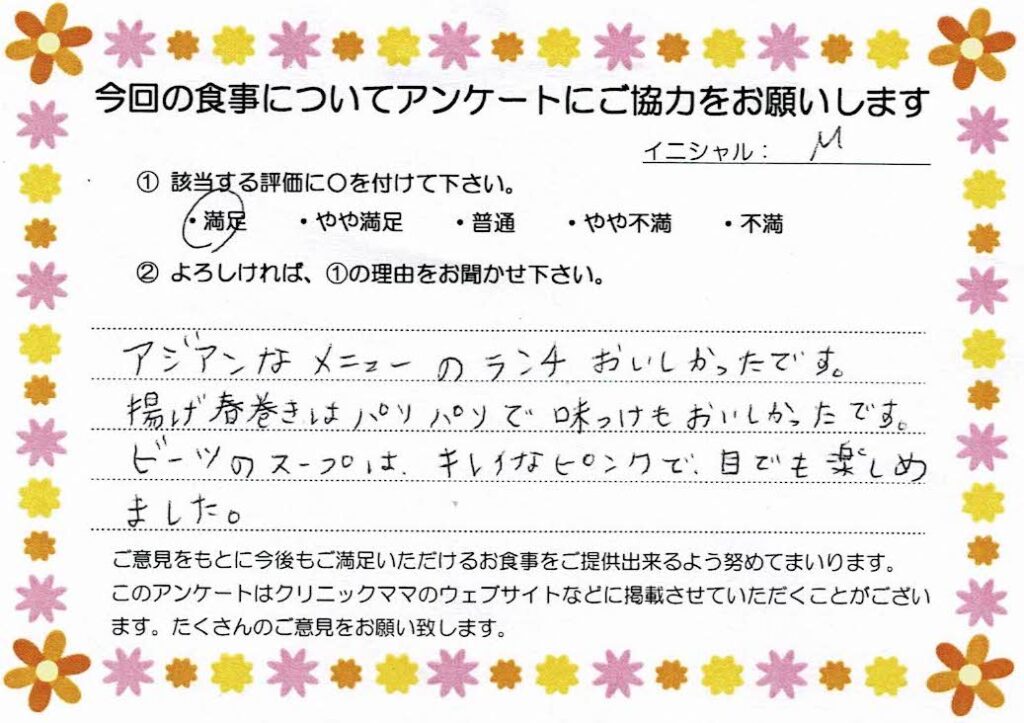 今回の食事についてアンケートにご協力をお願いします
イニシャル： M
① 該当する評価に〇を付けて下さい。
・満足 ・やや満足 ・普通 ・やや不満 ・不満
② よろしければ、①の理由をお聞かせ下さい。
アジアンなメニューのランチおいしかったです。
揚げ春巻きはパリパリで味つけもおいしかったです。
ビーツのスープは、キレイなピンクで、目でも楽しめ
ました。
ご意見をもとに今後もご満足いただけるお食事をご提供出来るよう努めてまいります。
このアンケートはクリニックママのウェブサイトなどに掲載させていただくことがござい
ます。たくさんのご意見をお願い致します。